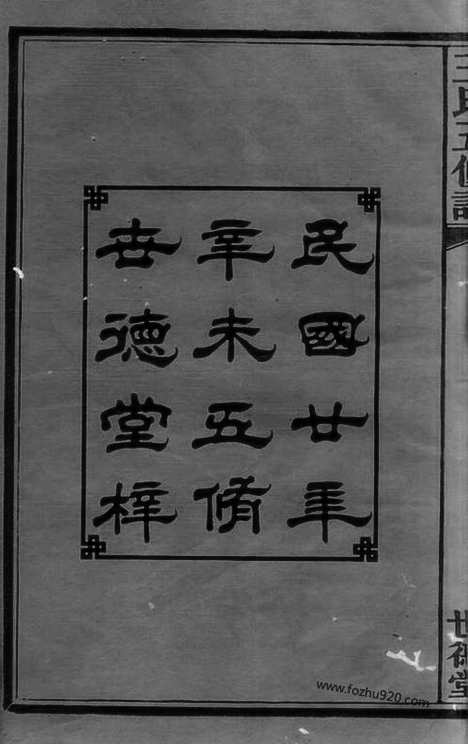 民國廿年
辛未五脩
世德堂梓
王氏五修譜
世德堂
www.fozhu920.com